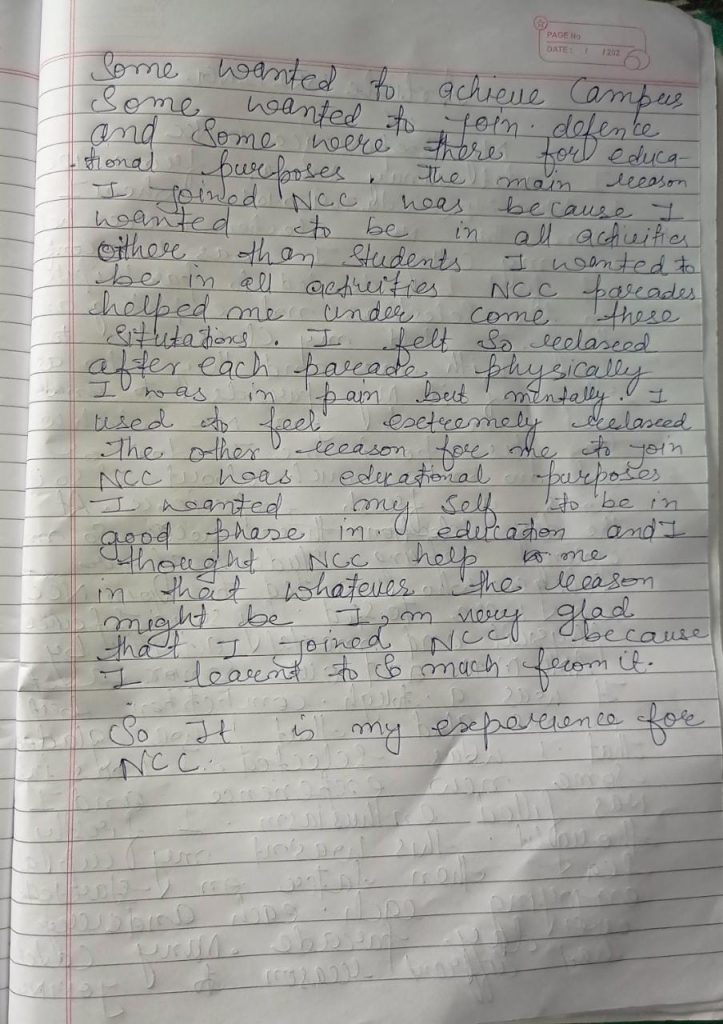 PAGE No
DATE: / /202
6
Some wanted to achieve Campus
Some wanted to join. defence
and some were there for educa-
tional purposes. The main reason
I joined NCC was because I
wanted to be in all activities
other than students I wanted to
be in all activities NCC parades
helped me under come these
Situtations. I felt so relaxed
after each parade physically
I was in pain but mentally. I
used to feel extremely relaxed
The other reason for me to join
NCC was educational purposes
I wanted my self to be in
good phase in education and I
thought NCC help me
in that whatever the reason
might be I,m very glad
that I joined NCC because
I learnt to so much from it.
So It is my experience for
NCC.